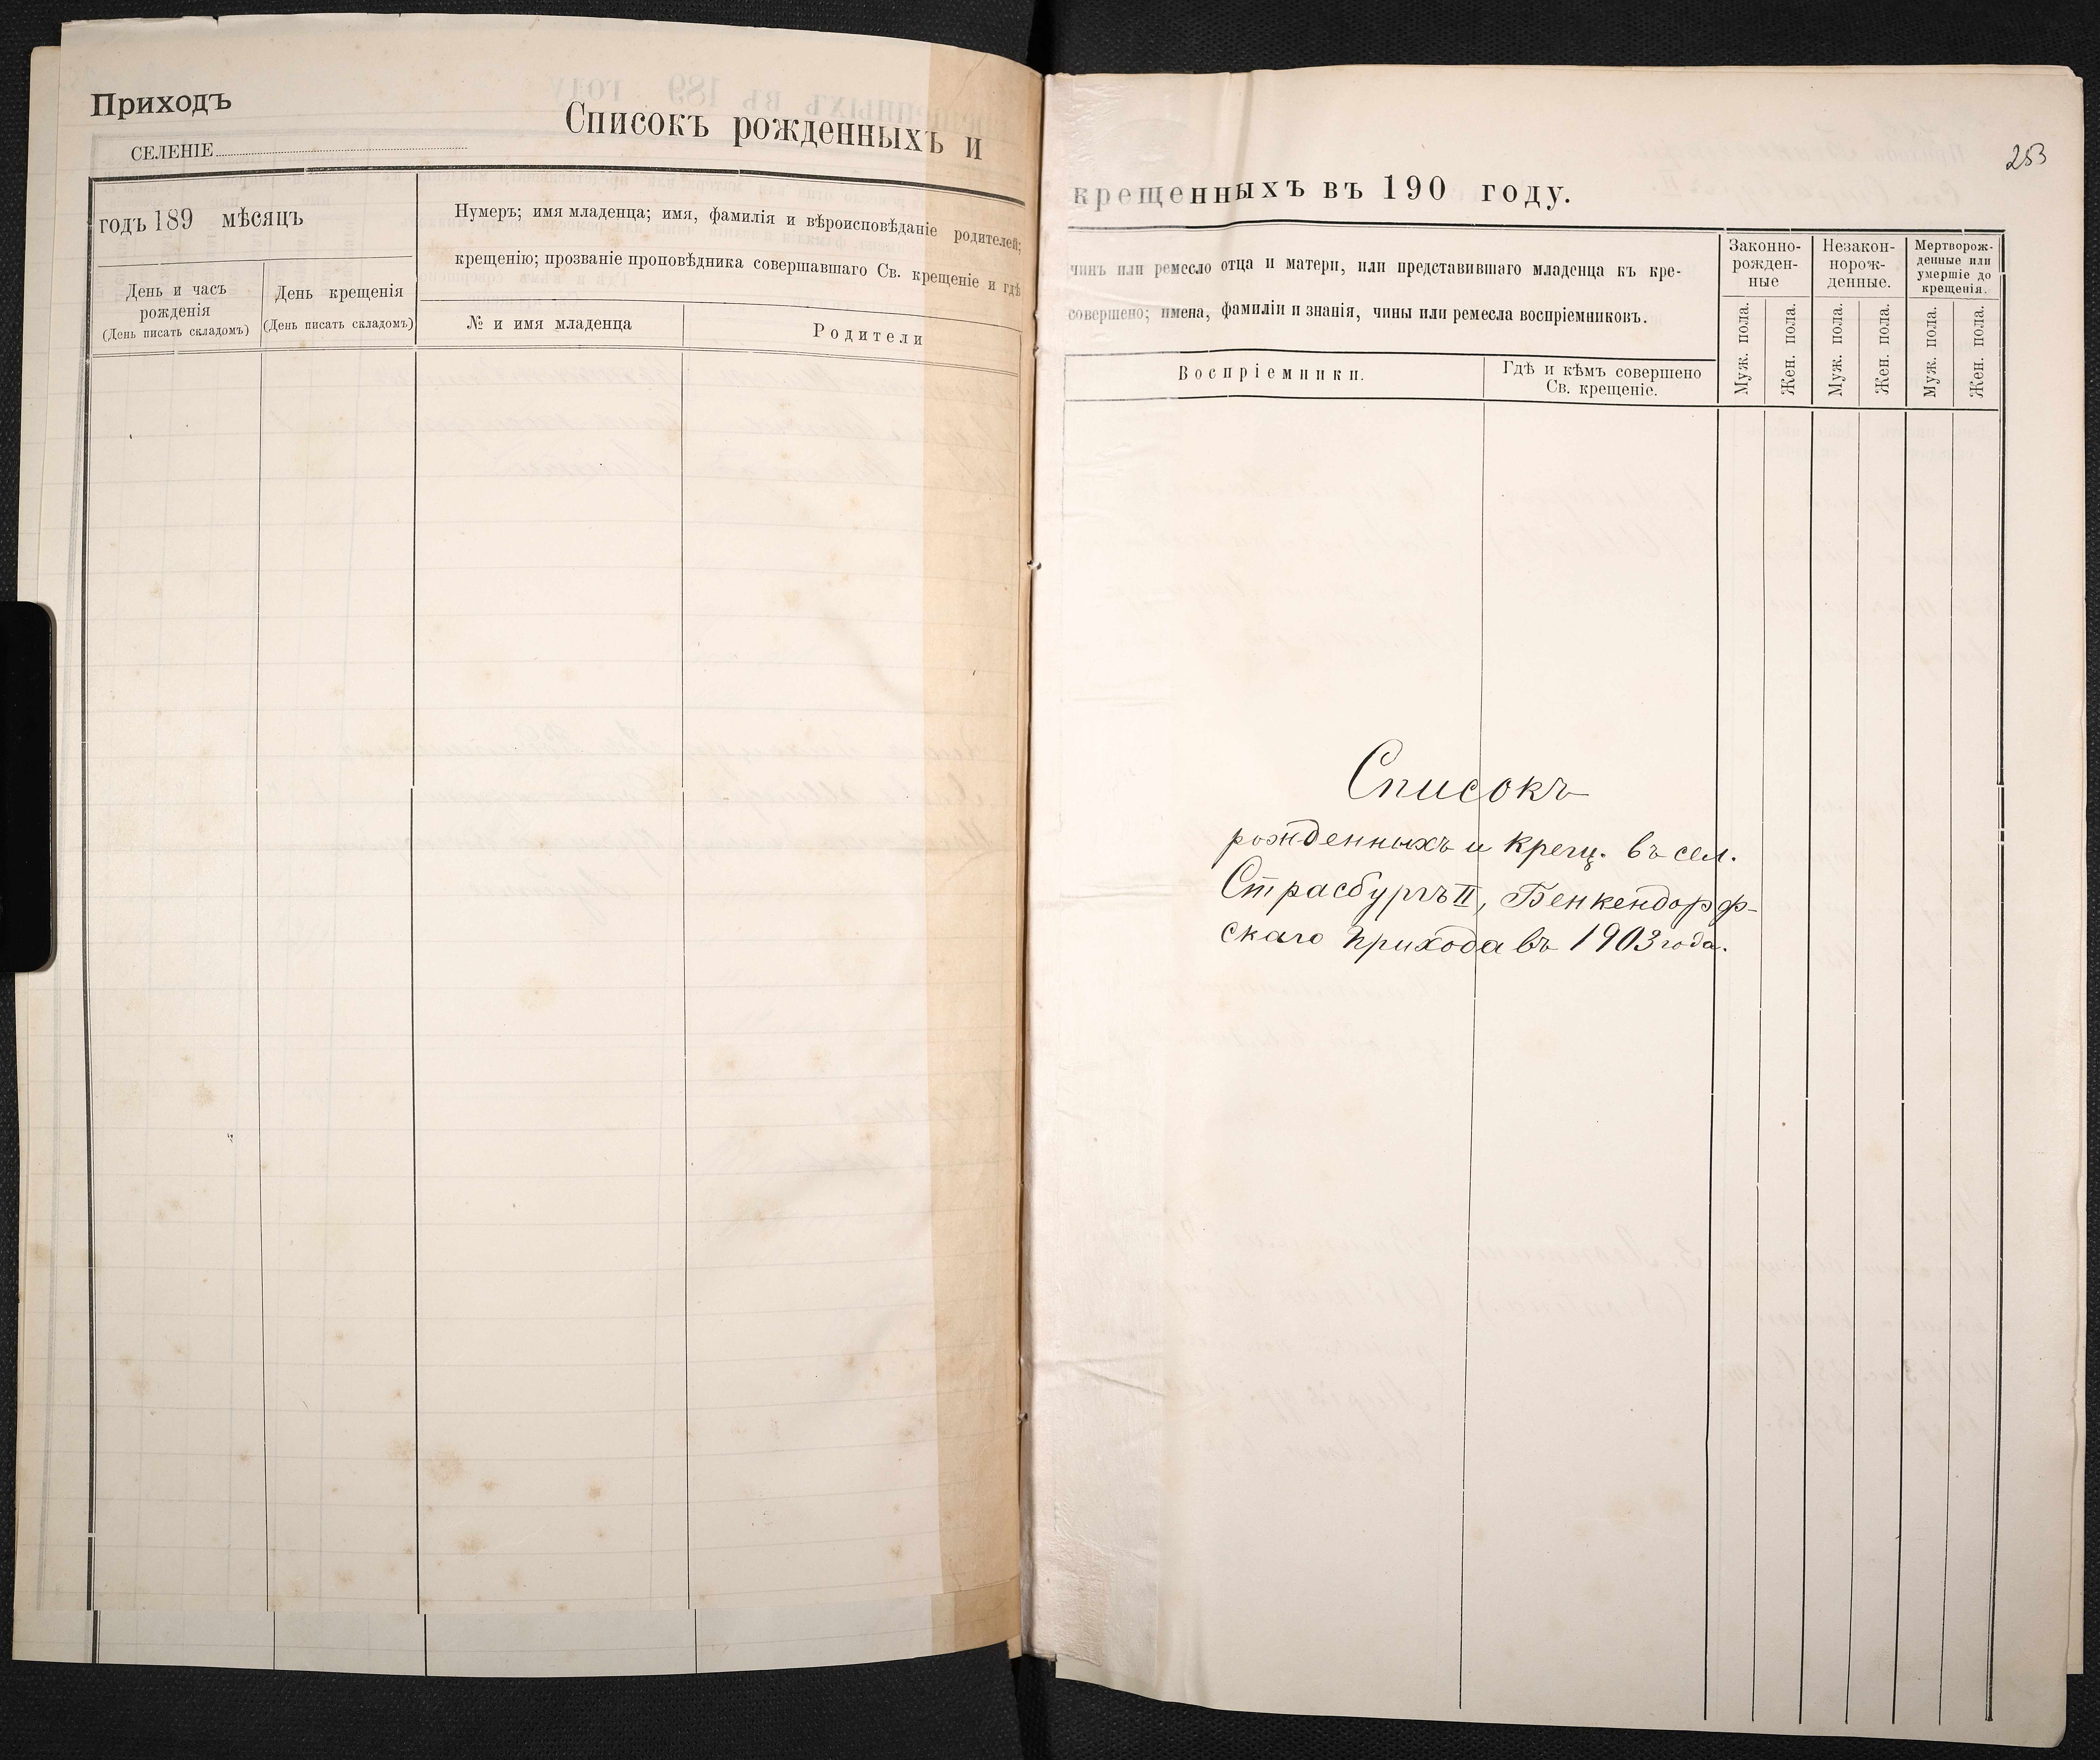 Приходъ
СЕЛЕНІЕ
Списокъ рожденныхъ и
годъ 189 мѣсяцъ
Нумеръ; имя младенца; имя, фамилія и вѣроисповѣданіе родителей;
крещенію; прозваніе проповѣдника совершавшаго Св. крещеніе и гдѣ
День и часъ
рожденія
(День писать складомъ)
День крещенія
(День писать складомъ)
№ и имя младенца
Родители
253
крещенныхъ въ 190 году.
чинъ или ремесло отца и матери, или представившаго младенца къ кре-
совершено; имена, фамиліи и знанія, чины или ремесла воспріемниковъ.
Воспріемники.
Гдѣ и кѣмъ совершено
Св. крещеніе.
Законно-
рожден-
ные
Незакон-
норож-
денные.
Мертворож-
денные или
умершіе до
крещенія.
Муж. пола.
Жен. пола.
Муж. пола.
Жен. пола.
Муж. пола.
Жен. пола.
Списокъ
рожденныхъ и крещ. въ сел.
Страсбургъ II, Бенкендорф-
скаго прихода въ 1903 года.